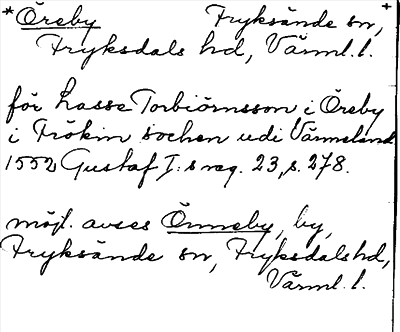 *Öreby Fryksände sn, +
Fryksdals hd, Värml. l.
för Lasse Torbiörnsson i Öreby
i Frökin sochen udi Värmeland
1552 Gustaf I:s reg. 23, s. 278.
möjl. avses Önneby, by,
Fryksände sn, Fryksdals hd,
Värml. l.